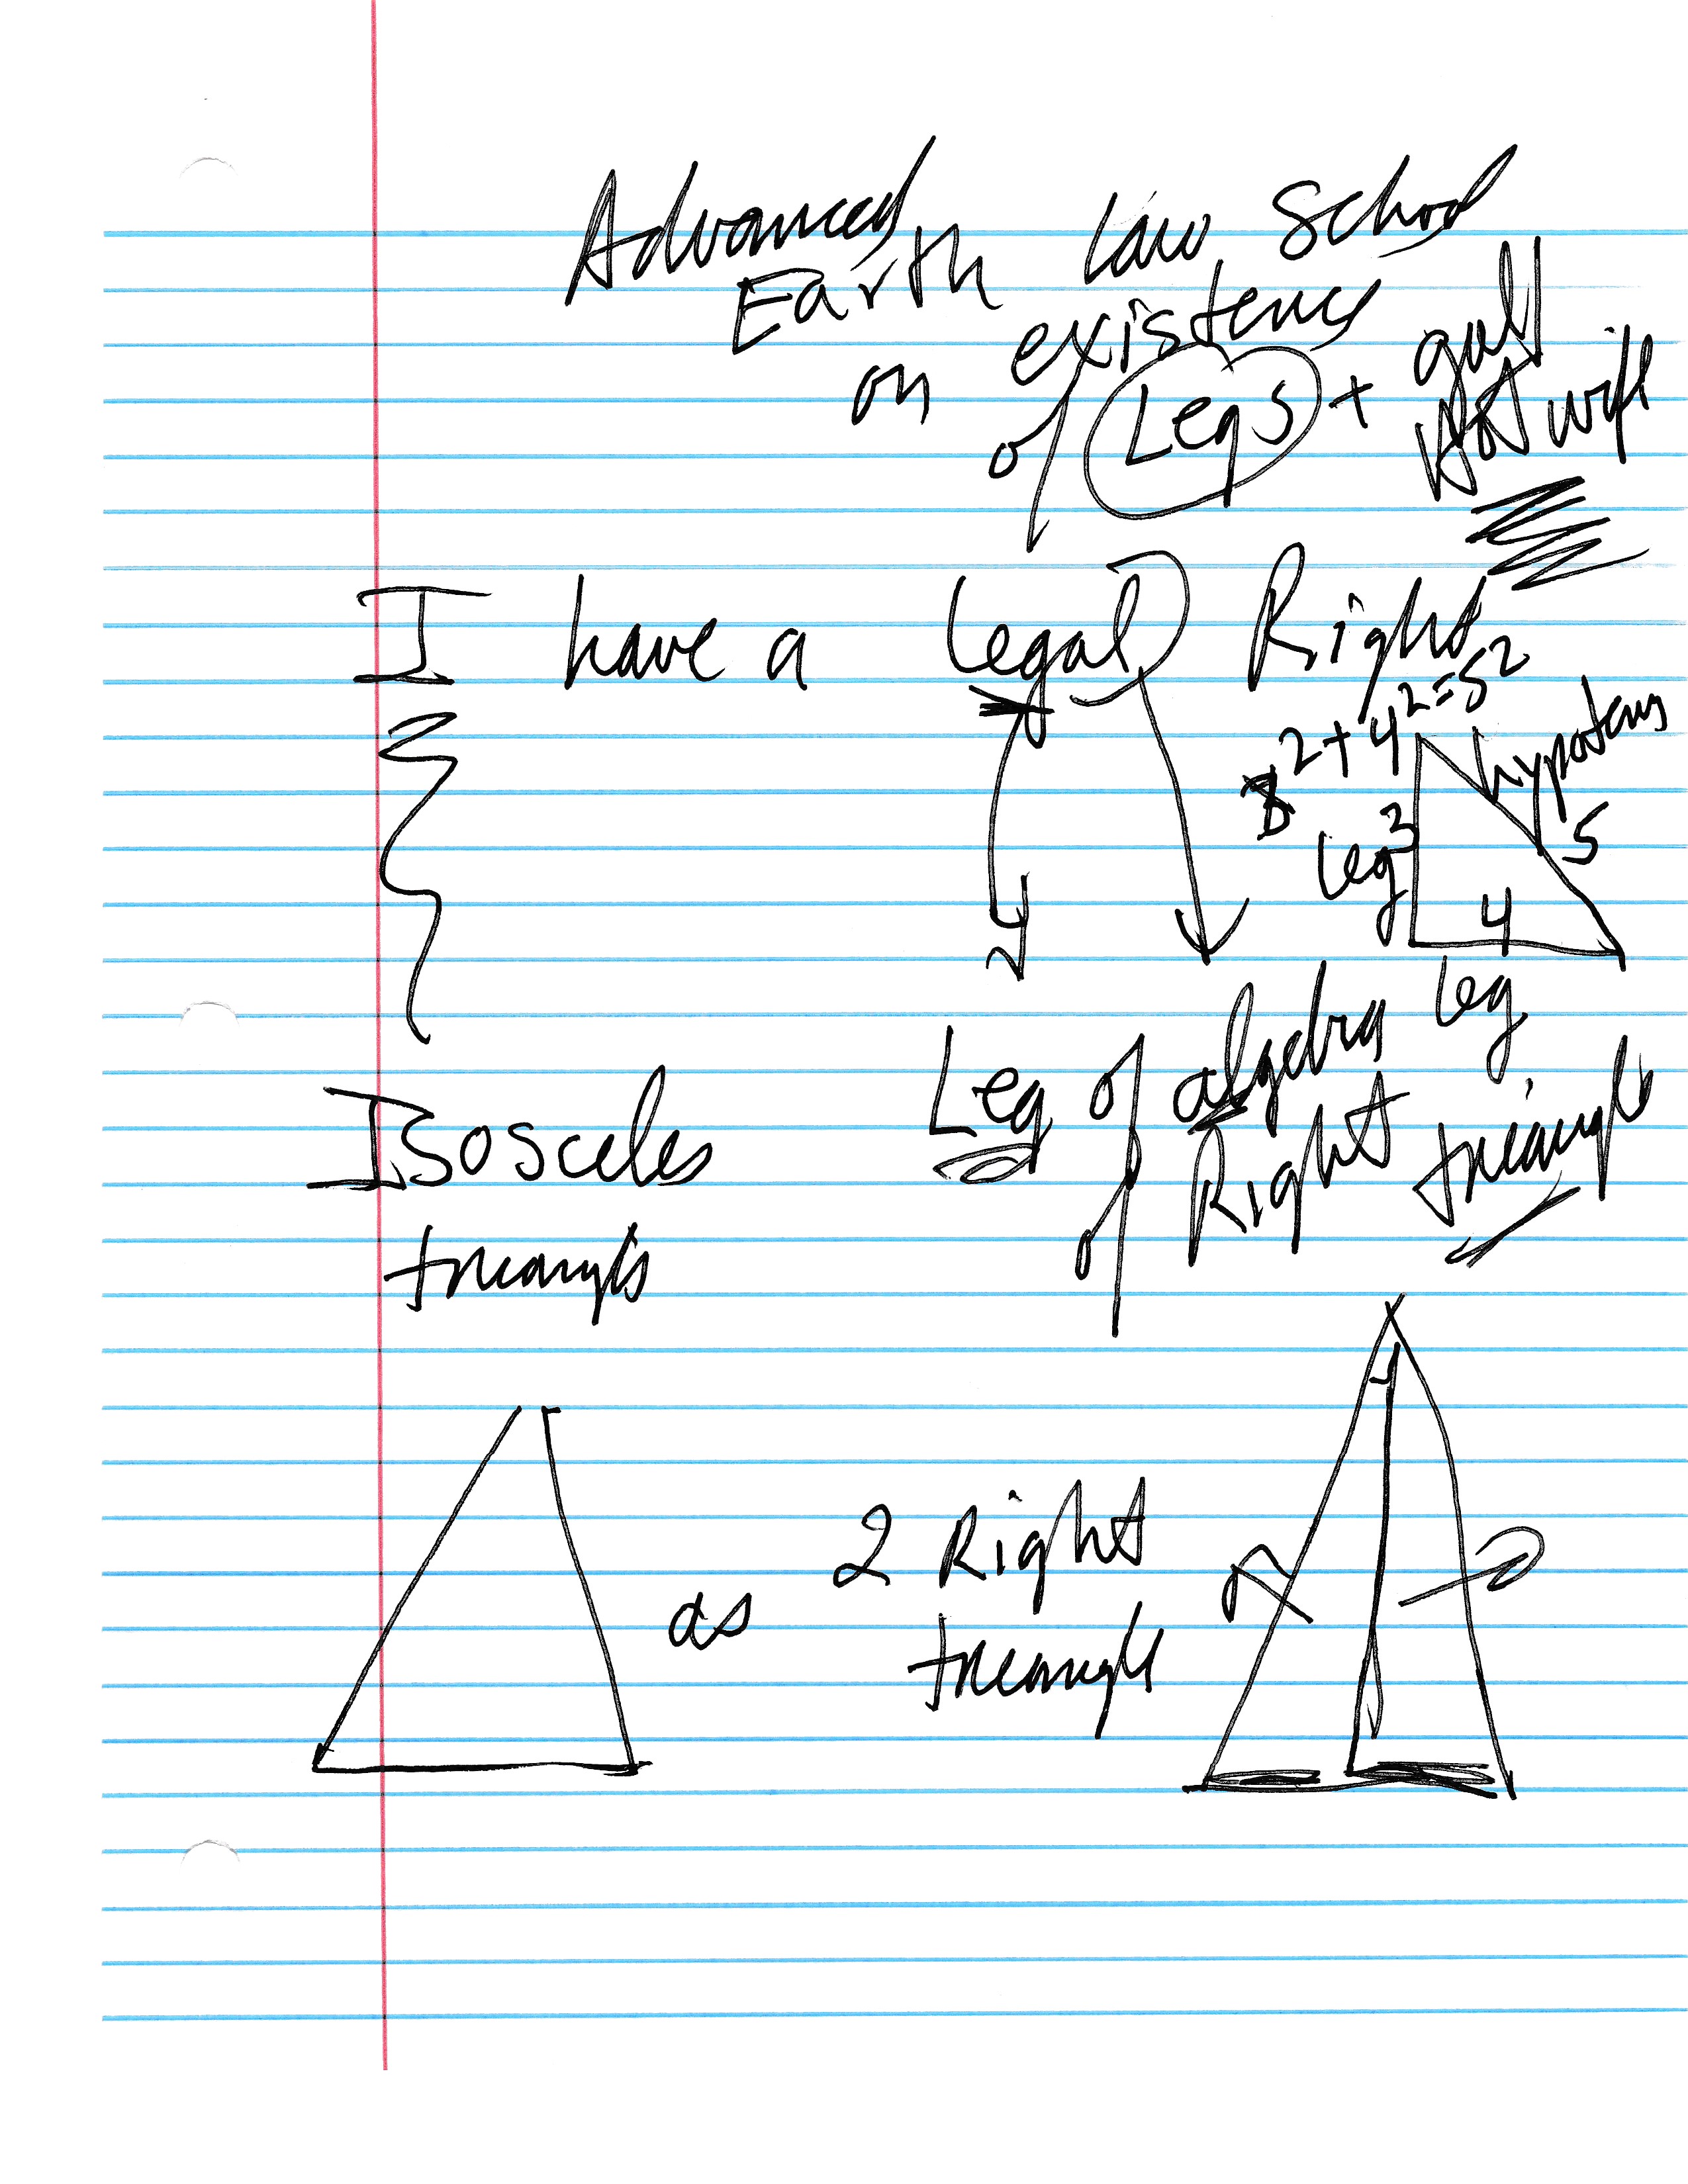 Advanced
Earth Law School
on existence
of Legs +
not wife
I have a Legal Right
3² + 4² = 5²
hypotenus
leg 3
5
4
leg
Leg of algebra
of Right triangle
Isosceles
triangle
as
2 Right
triangle